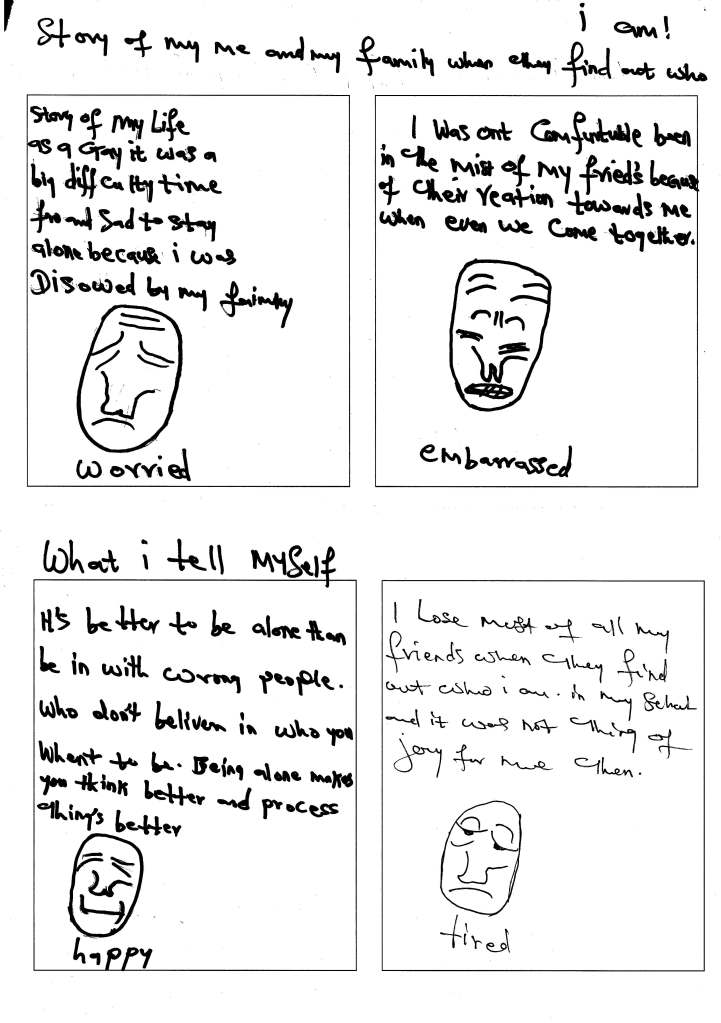 i am!
Story of my me and my family when they find out who
Story of My Life
as a Gay it was a
big difficulty time
fro and Sad to stay
alone because i was
Disowed by my faimky
worried
I Was ont Comfuntuble been
in the mist of my frieds because
of their reation towards me
when even we Come together.
embarrassed
What i tell MySelf
It's better to be alone than
be in with worong people.
Who don't beliven in who you
Whent to be. Being alone makes
you think better and process
thing's better
happy
I Lose most of all my
friends when they find
out who i am. in my Schal
and it was not thing of
joey for me then.
tired